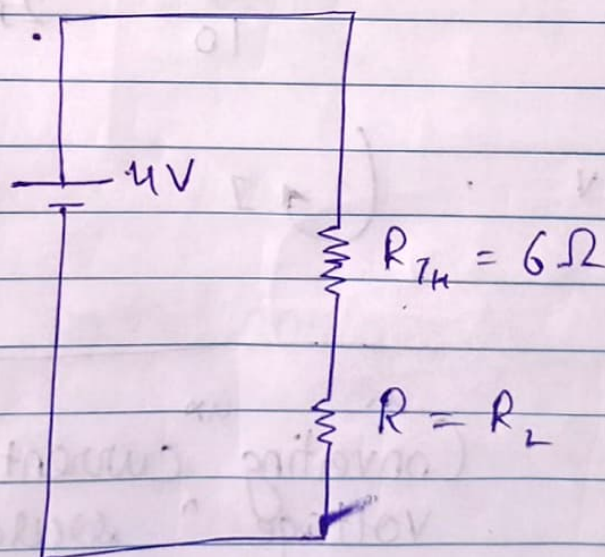 4V
R_TH = 6Ω
R = R_L